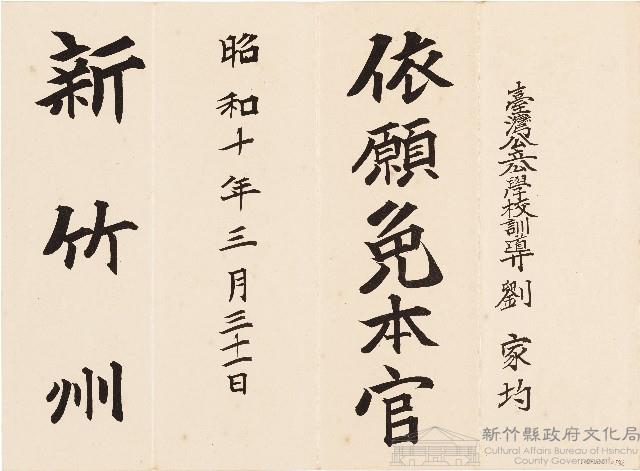 臺灣公立公學校訓導 劉家圴
依願免本官
昭和十年三月三十一日
新竹州
新竹縣政府文化局
Cultural Affairs Bureau of Hsinchu
County Government